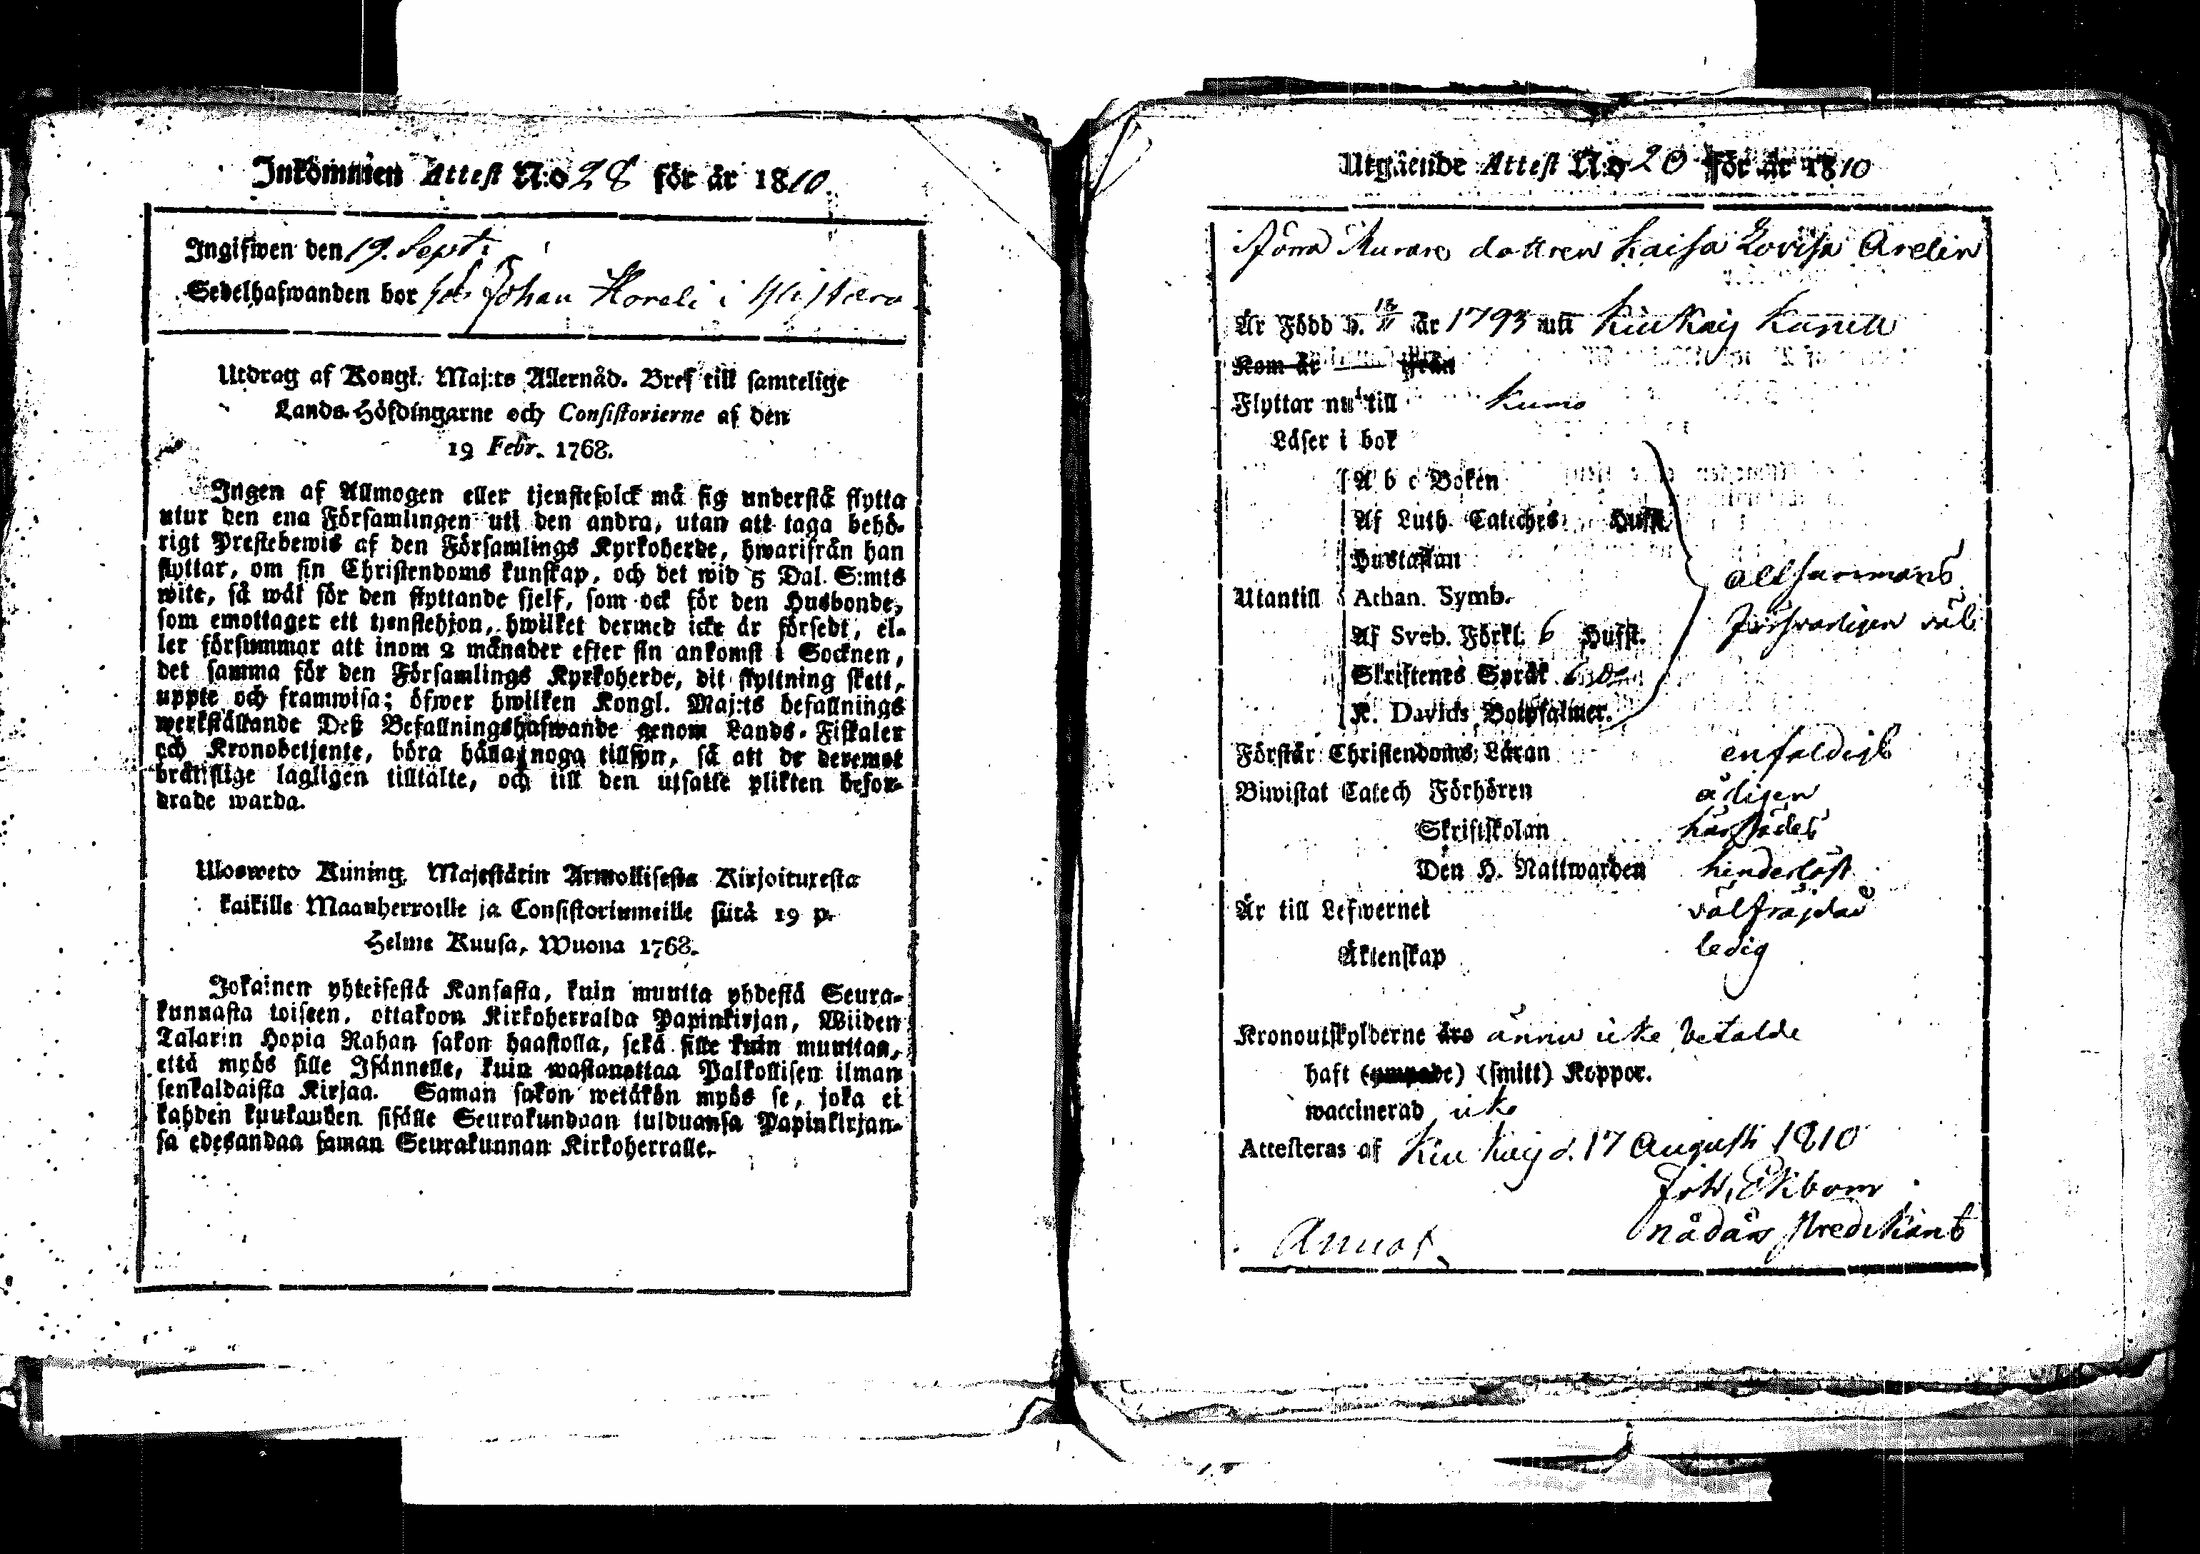 Inkommen Attest N:o 28 för år 1810.
Ingifwen den 19. Sept:
Sedelhafwanden bor hos Johan Horeli i
Utdrag af Kongl. Maj:ts Allernåd. Bref till samtelige
Lands-Höfdingarne och Consistorierne af den
19 Febr. 1768.
Ingen af Allmogen eller tjenstefolck må sig understå flytta
utur den ena Församlingen uti den andra, utan att taga behö-
rigt Prestebewis af den Församlings Kyrkoherde, hwarifrån han
flyttar, om sin Christendoms kunskap, och det wid 5 Dal. S:mts
wite, så wäl för den flyttande sjelf, som ock för den Husbonde,
som emottager ett tjenstehjon, hwilket dermed icke är försedt, el-
ler försummar att inom 2 månader efter sin ankomst i Socknen,
det samma för den Församlings Kyrkoherde, dit flyttning skett,
uppte och framwisa; öfwer hwilken Kongl. Maj:ts befallnings
werkställande Deß Befallningshafwande genom Lands-Fiskaler
och Kronobetjente, böra hålla noga tillsyn, så att de deremot
bråtslige lagligen tilltalte, och till den utsatte plikten befor-
drade warda.
Ulosweto Kuning. Majestätin Armollisesta Kirjoituxesta
kaikille Maanherroille ja Consistoriumeille siitä 19 p.
Helme Kuusa, Wuona 1768.
Jokainen yhteisestä Kansasta, kuin muutta yhdestä Seura-
kunnasta toiseen, ottakoon Kirkoherralda Papinkirjan, Wiiden
Talarin Hopia Rahan sakon haastolla, sekä sille kuin muuttaa,
että myös sille Isännelle, kuin wastanottaa Palkollisen ilman
senkaldaista Kirjaa. Saman sakon wetäkön myös se, joka ei
kahden kuukauden sisälle Seurakundaan tulduansa Papinkirjan-
sa edesandaa saman Seurakunnan Kirkoherralle.
Utgående Attest N:o 20 för år 1810
Murare dottren Kaisa Lovisa Arelin
Är Född d. år 1793 uti Kiukais Kapell
Kom år ifrån
Flyttar nu till Kumo
Läser i bok
A b c Boken
Af Luth. Catches. Hufst.
Hustaflan
Utantill Athan. Symb.
Af Sveb. Förkl. 6 Hufst.
Skriftenes Språk
K. Davids Botpsalmer.
allsammans
försvarligen väl
Förstår Christendoms Läran enfaldigt
Biwistat Catech Förhören årligen
Skriftskolan härstädes
Den H. Nattwarden hinderlöst
Är till Lefwernet välfräjdad
Äktenskap ledig
Kronoutskylderne äro ännu icke betalde
haft (ympade) (smitt) Koppor.
waccinerad icke
Attesteras af Kiukais d. 17 Augusti 1810
Ekbom
nådårs Predikant
Annot.